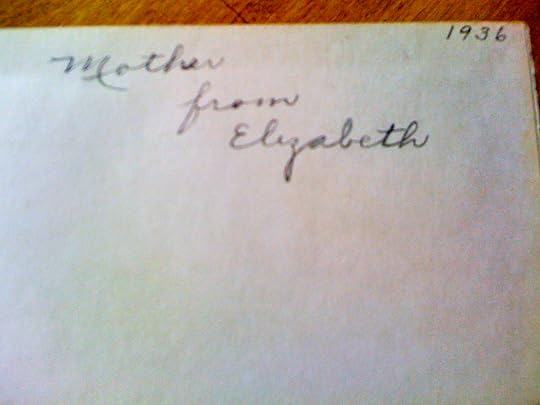 1936
Mother
from
Elizabeth